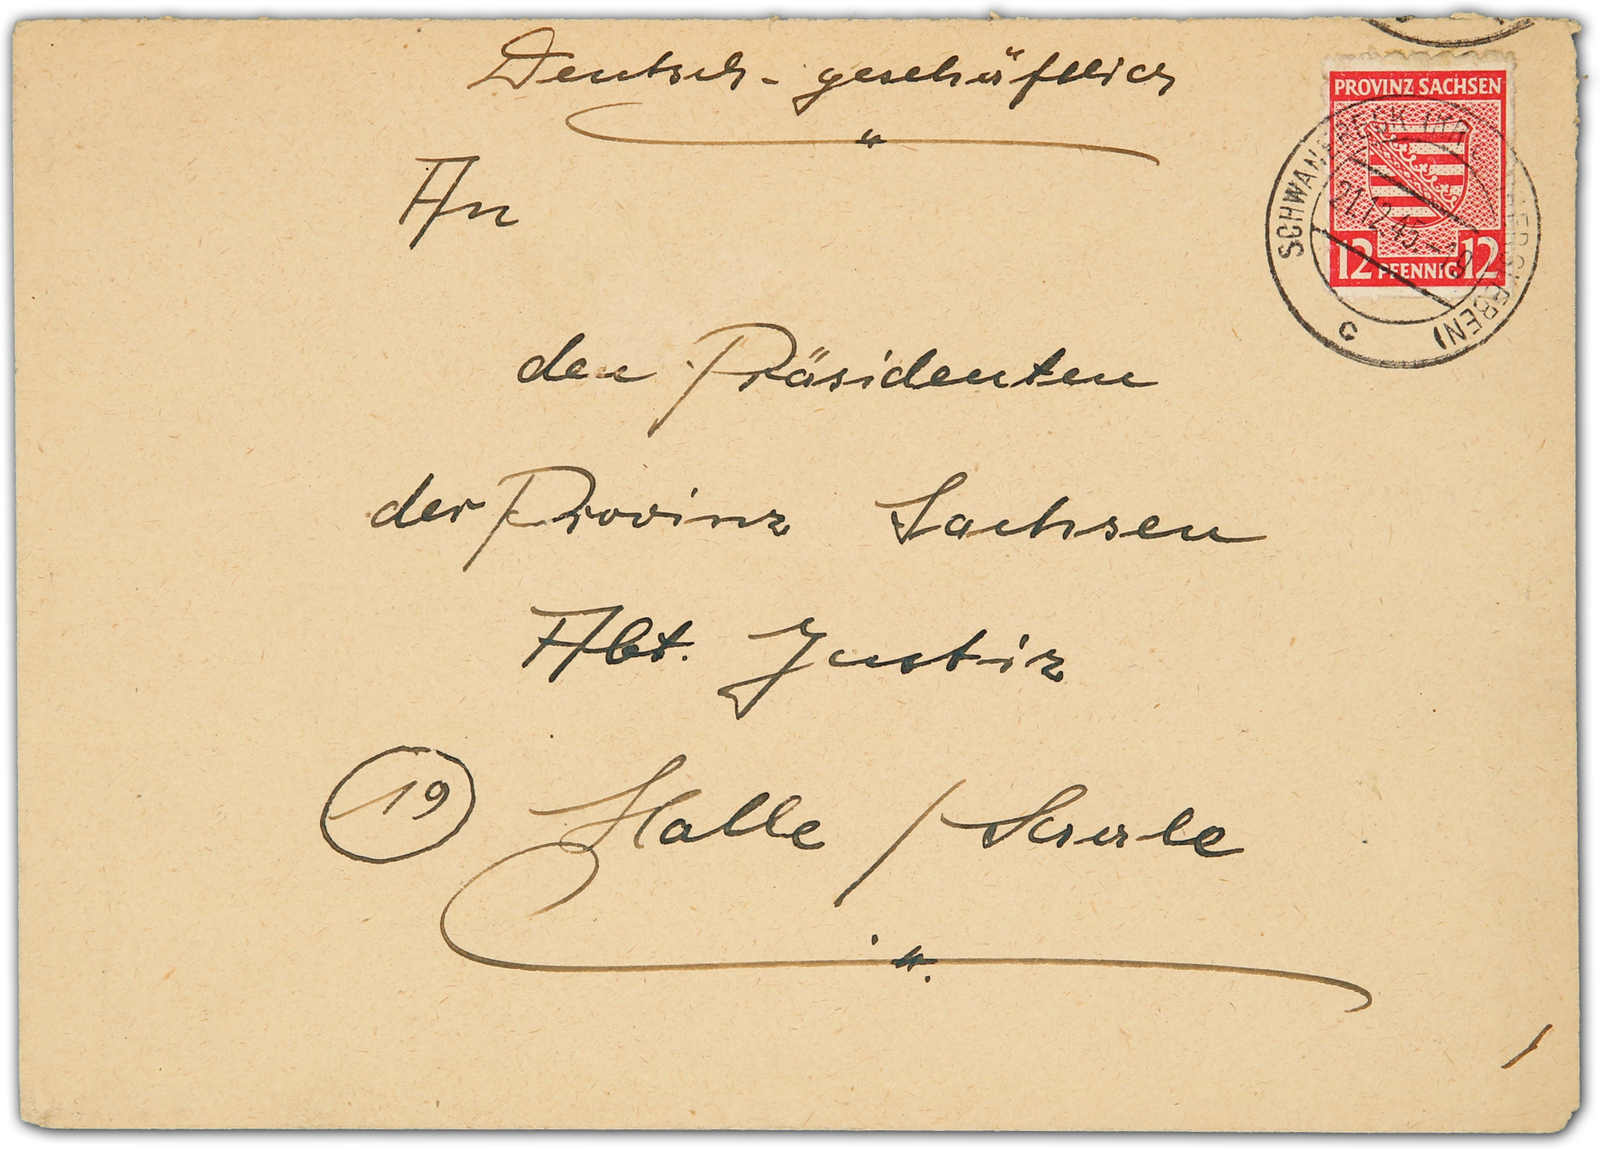 Deutsch - geschäftlich
An
den Präsidenten
der Provinz Sachsen
Abt. Justiz
19 Halle / Saale
PROVINZ SACHSEN
12 PFENNIG 12
SCHWANEBECK
21.12.45
c